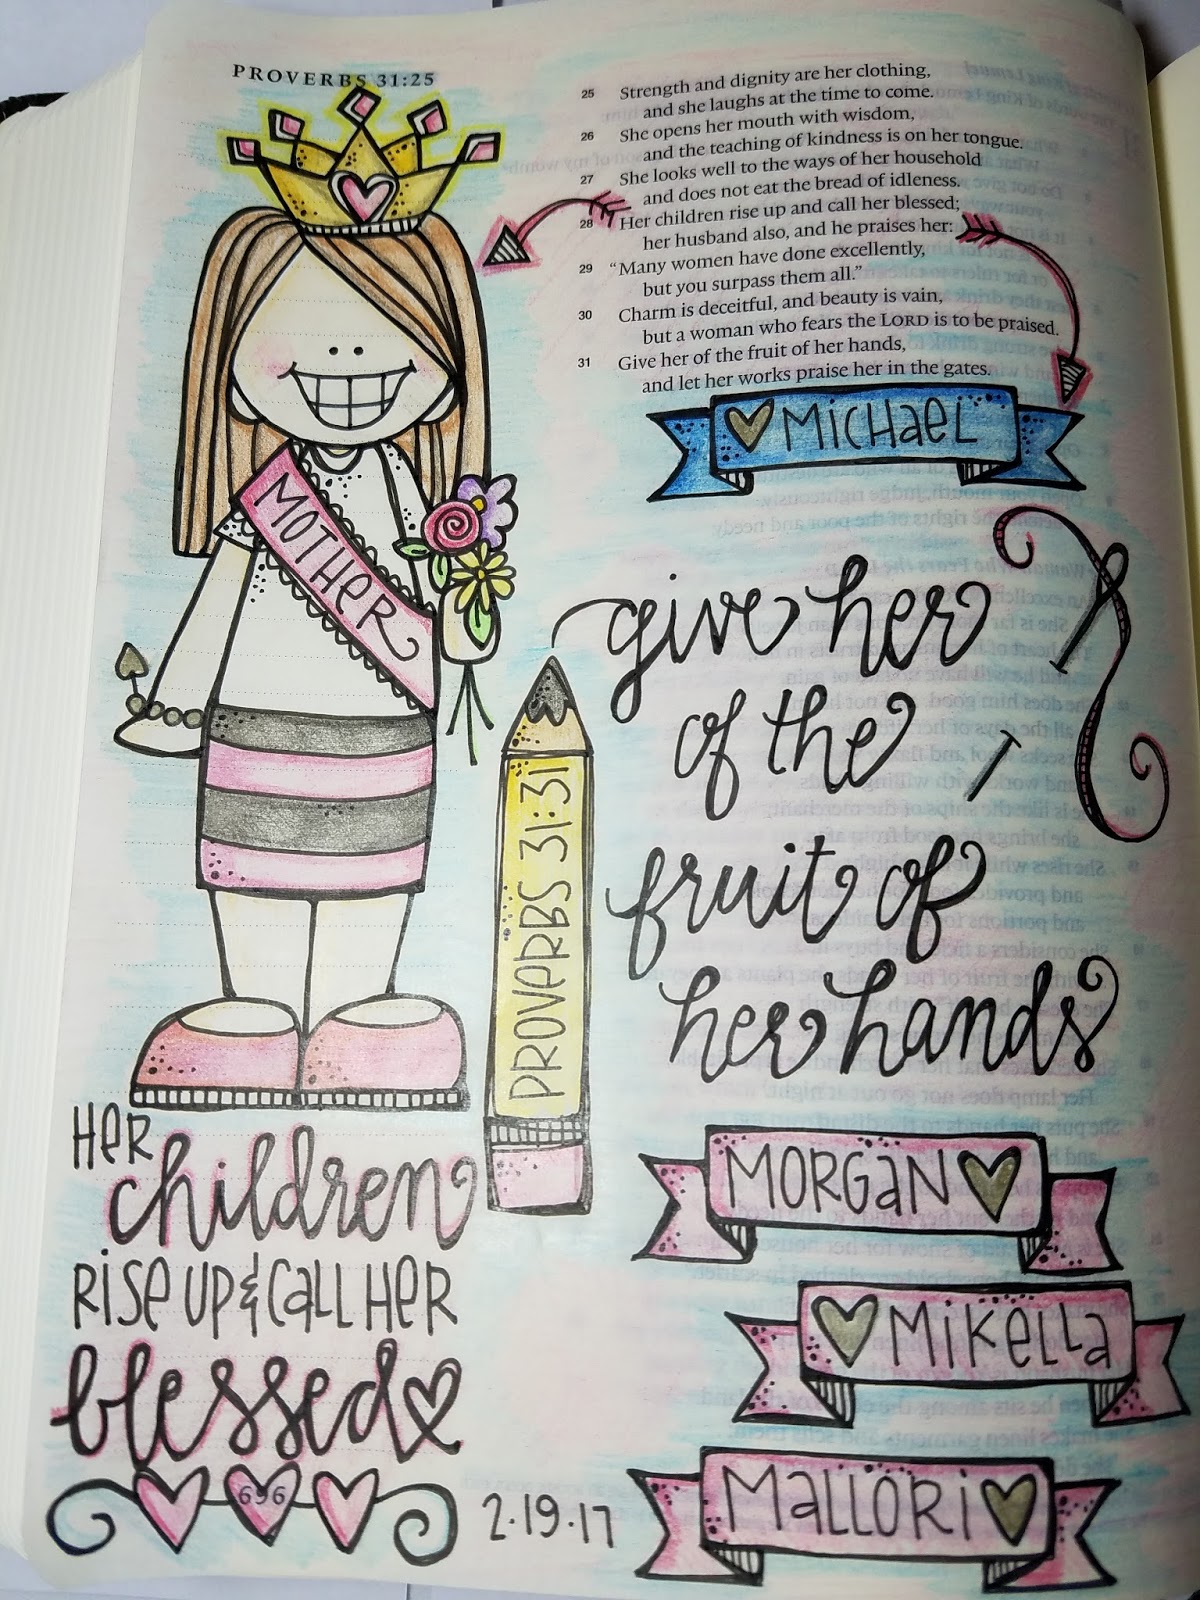 PROVERBS 31:25
25 Strength and dignity are her clothing,
and she laughs at the time to come.
26 She opens her mouth with wisdom,
and the teaching of kindness is on her tongue.
27 She looks well to the ways of her household
and does not eat the bread of idleness.
28 Her children rise up and call her blessed;
her husband also, and he praises her:
29 "Many women have done excellently,
but you surpass them all."
30 Charm is deceitful, and beauty is vain,
but a woman who fears the LORD is to be praised.
31 Give her of the fruit of her hands,
and let her works praise her in the gates.
MicHaeL
MOTHer
give her
of the
fruit of
her hands
PROVerBS 31:31
Her
children
rise up & call Her
blessed
696
2.19.17
MORGaN
MiKeLLa
MaLLORi